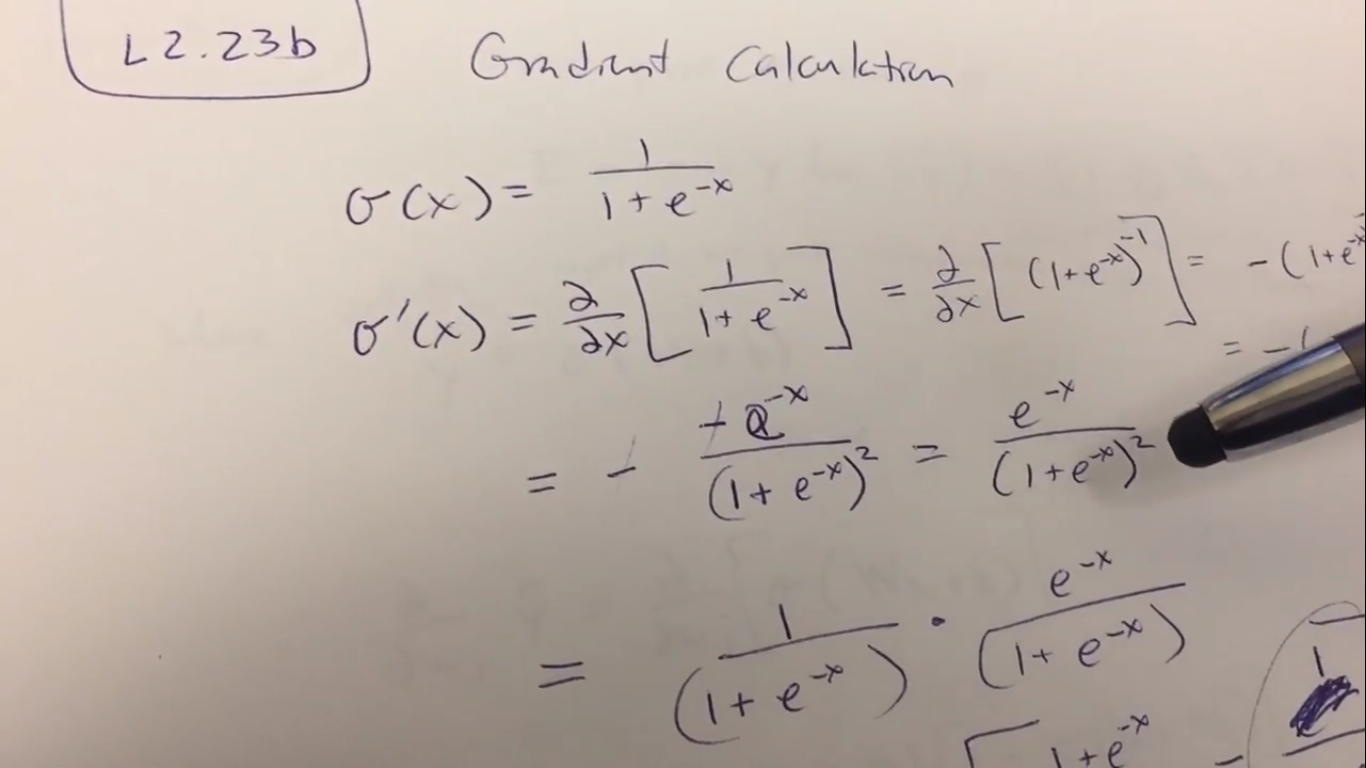 L2.23b Gradient Calculation
σ(x) = 1/(1 + e^-x)
σ'(x) = ∂/∂x [1/(1 + e^-x)] = ∂/∂x [(1+e^-x)^-1] = -(1+e^-x
= -(
= - + e^-x/(1 + e^-x)^2 = e^-x/(1+e^-x)^2
= 1/(1 + e^-x) · e^-x/(1 + e^-x)
[ 1+e^-x - 1